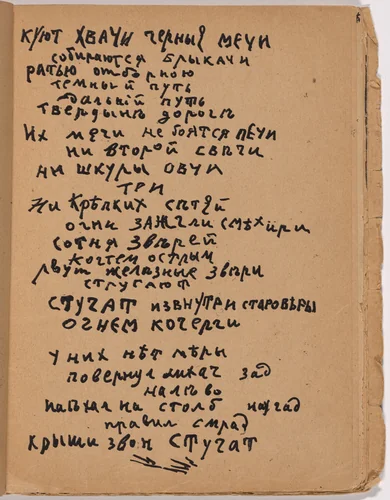 куют хвачи черныя мечи
собираются брыкачи
ратью отборною
темный путь
дальнiй путь
твердынь дорогъ
Их мечи не боятся печи
ни второй свѣчи
ни шкуры овчи
три
Ни крѣпких сѣтей
огни зажгли смѣхири
сотня звѣрей
когтем острым
рвут желѣзные звѣри
стругают
стучат извнутри старовѣры
огнем кочерги
у них нѣт мѣры
повернул лихач зад
налѣво
наѣхал на столб
правил смрад
крыши звон стучат